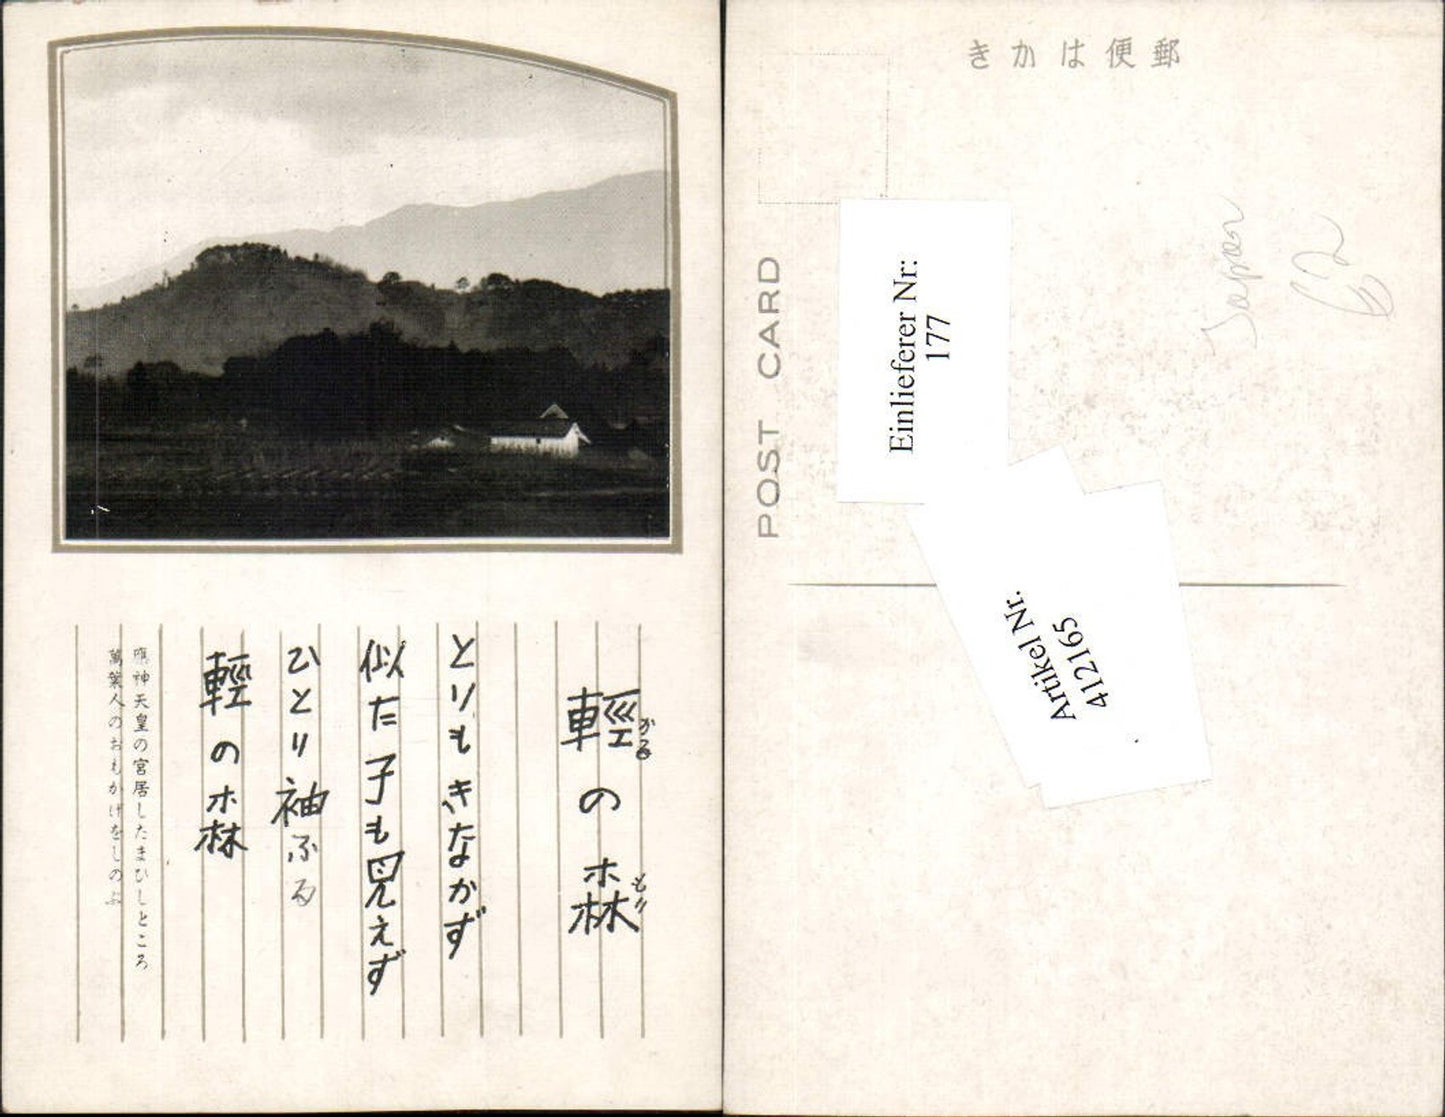 輕の森
かる
もり
とりもきなかず
似た子も見えず
ひとり袖ふる
輕の森
應神天皇の宮居したまひしところ
萬葉人のおもかげをしのぶ
きかは便郵
POST CARD
Einlieferer Nr:
177
Artikel Nr.
412165
Japan
62